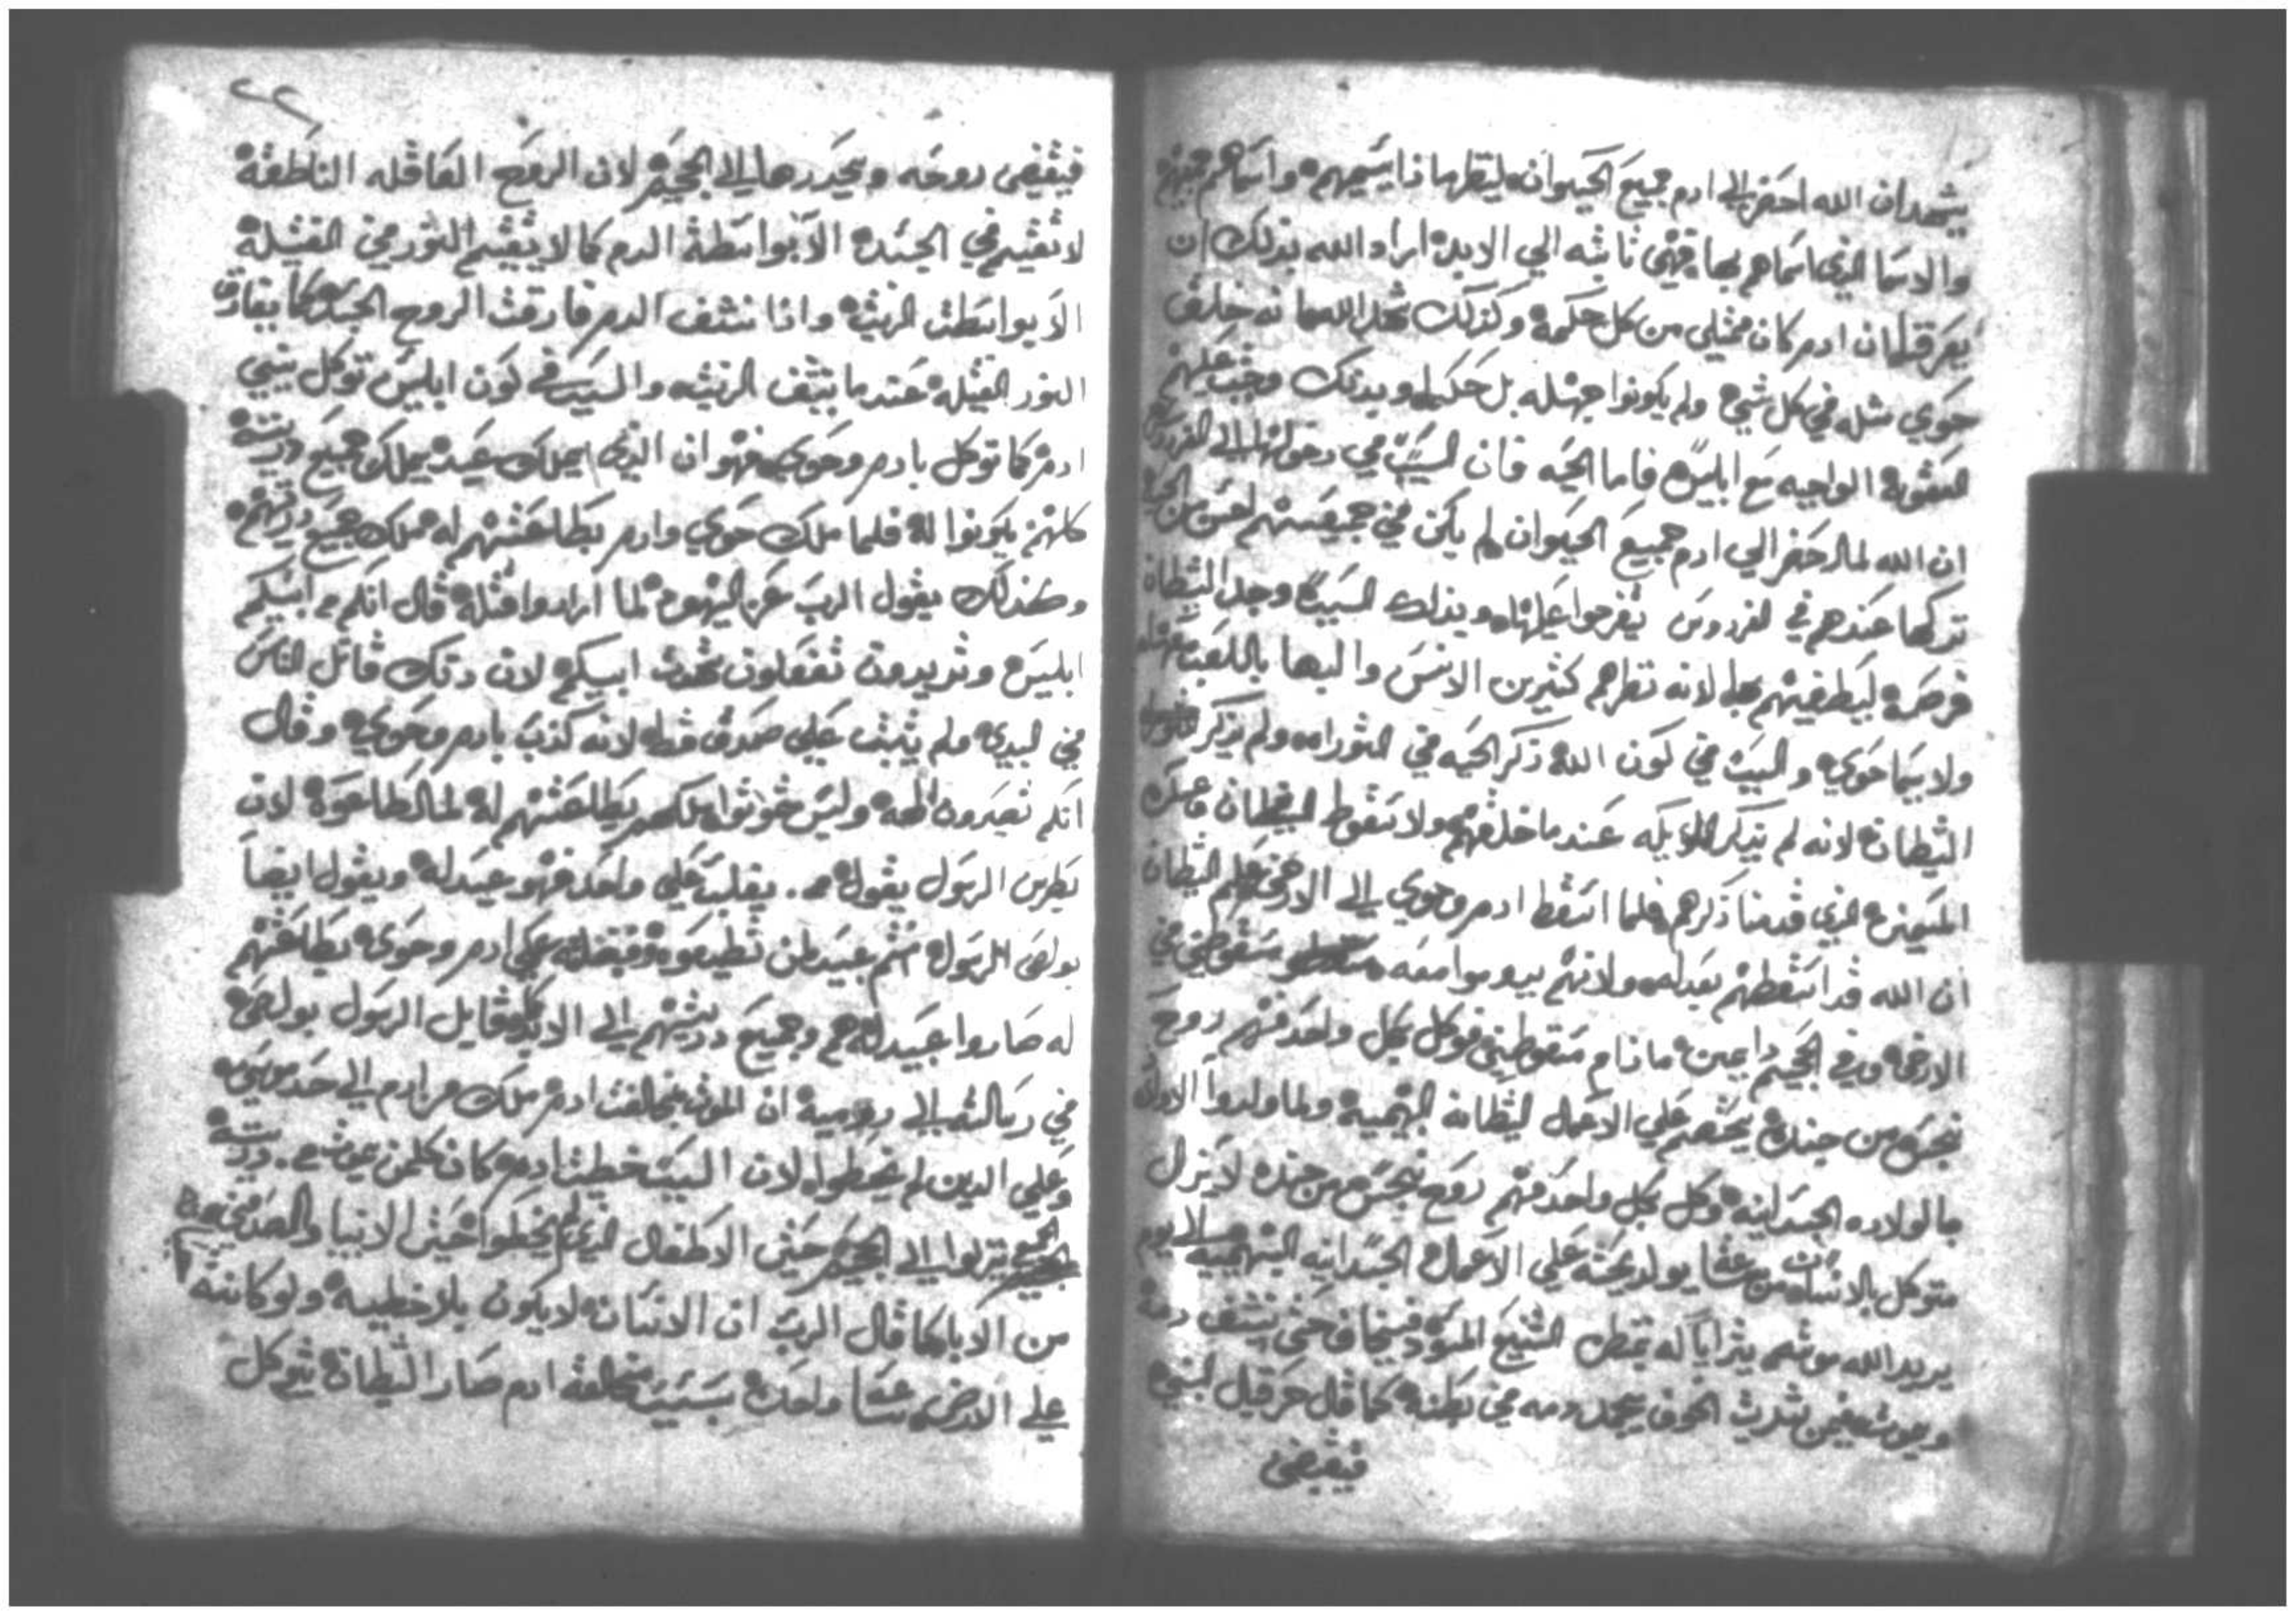 يشهد ان الله احضر الي ادم جميع الحيوان لينظر ماذا يسميهم واسماهم جميعهم
والاسما الذي اسماهم بها فهي ثابته الي الابد اراد الله بذلك ان
يعرفنا ان ادم كان ممتلي من كل حكمة وكذلك الله خلق
حوي مثله في كل شي ولم يكونوا جهله بل حكما وبذلك وجبت عليهم
العقوبه الواجبه مع ابليس فاما الحيه فان السبب في دخولها الي الفردوس
ان الله لما احضر الي ادم جميع الحيوان لم يكن في جميعهم احسن من الحيه
تركها عندهم في الفردوس يتفرجوا عليها وبذلك السبب وجد الشيطان
فرصه ليطغيهم بها لانه نظرهم كثيرين الانس واليها باللعب
ولا سيما حوي والسبب في كون الله ذكر الحيه في التوراه ولم يذكر
الشيطان لانه لم يذكر الملايكه عند ما خلقهم ولا سقوط الشيطان
الذي قدمنا ذكرهم فلما اسقط ادم وحوي الي الارض علم الشيطان
ان الله قد اسقطهم بعدله ولانهم معه سقوطين في
الارض وفي الجحيم دايمين ما دام سقوطين فوكل بكل واحد منهم روح
نجس من جنده يحثهم علي الاعمال الشيطانه البهيميه ولما ولدوا الاولاد
بالولاده الجسدانيه وكل بكل واحد منهم روح نجس من جنده لا يزال
متوكل بالانسان من ساعة يولد يحثه علي الاعمال الجسدانيه البهيميه الي يوم
يريد الله موته يترايا له بمنظر الشنيع المسود فيخاف حتي ينشف دمه
ويموت فمن شدة الخوف يجمد دمه في بطنه كما قال حزقيال النبي
فيقبض
٢٢
فيقبض روحه ويحدرها الي الجحيم لان الروح العاقله الناطقة
لا تقيم في الجسد الا بواسطة الدم كما لا يقيم النور في الفتيلة
الا بواسطت الزيت واذا نشف الدم فارقت الروح الجسد كما يفارق
النور الفتيله عند ما ينشف الزيت والسبب في كون ابليس توكل ببني
ادم كما توكل بادم وحوي فهو ان الذي يملك عبد يملك جميع دريته
كلهم يكونوا له فلما ملك حوي وادم بطاعتهم له ملك جميع دريتهم
وكذلك يقول الرب عن اليهود لما ارادوا قتله قال انكم من ابيكم
ابليس وتريدون تفعلون شهوت ابيكم لان دلك قاتل الناس
من البدي ولم يثبت علي صدق قط لانه كذب بادم وحوي وقال
انكم تصيرون الهه وليس ملكهم بطاعتهم له لما اطاعوه لان
بطرس الرسول يقول من يغلب علي واحد فهو عبد له ويقول ايضا
بولص الرسول انتم عبيد لمن تطيعوه علي ادم وحوي بطاعتهم
له صاروا عبيد له هم وجميع دريتهم الي الابد قايل الرسول بولص
في رسالته الي روميه ان الموت بمخالفت ادم ملك من ادم الي حد موسي
وعلي الدين لم يخطوا لان السبب خطيت ادم كان كلمن
الجميع ينزلوا الي الجحيم حتي الاطفال الذي لم يخطوا حتي الانبيا والصديقين
من الابا كما قال الرب ان الانسان لا يكون بلا خطيه ولو كانت
علي الارض ساعة واحده بسبب مخالفة ادم صار الشيطان يتوكل